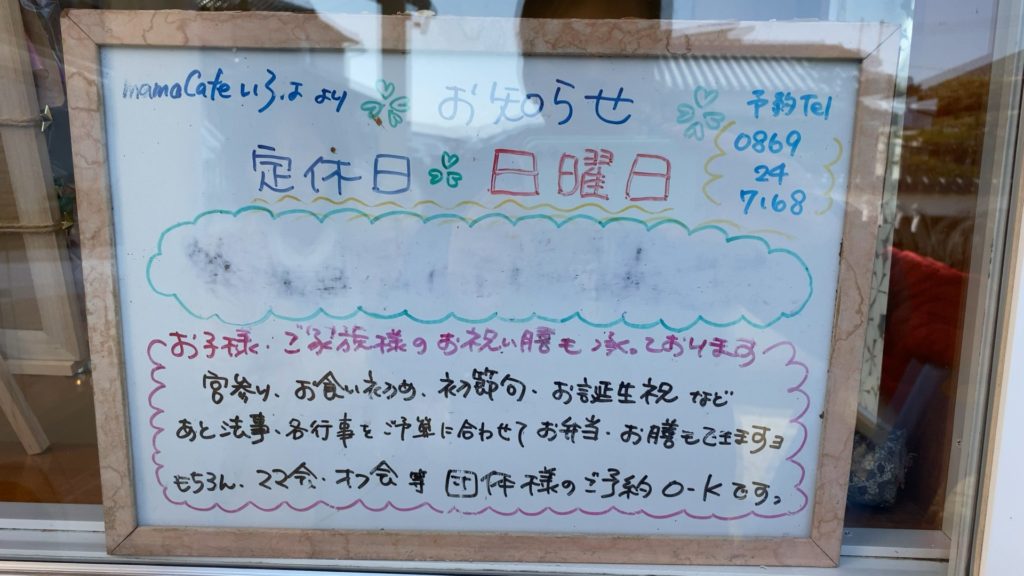 mamaCafe いろは より
お知らせ
予約Tel
0869
24
7168
定休日 日曜日
お子様・ご家族様のお祝い膳も承っております
宮参り、お食い初め、初節句・お誕生祝など
あと法事・各行事をご予算に合わせてお弁当・お膳もできますョ
もちろん、ママ会・オフ会等 団体様のご予約O-Kです。